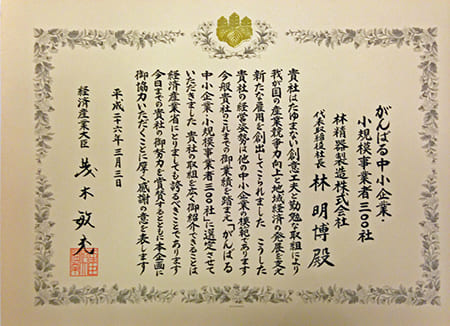 がんばる中小企業・
小規模事業者三〇〇社
林精器製造株式会社
代表取締役社長 林 明博 殿
貴社はたゆまない創意工夫と勤勉な取組により
我が国の産業競争力向上と地域経済の発展を支え
新たな雇用を創出してこられました こうした
貴社の経営姿勢は中小企業の模範であります
今般貴社のこれまでの御業績を踏まえ「がんばる
中小企業・小規模事業者三〇〇社」に選定させて
いただきました 貴社の取組を広く御紹介できることは
経済産業省にとりましても誇るべきことであります
今日までの貴社の御努力を賞賛するとともに本企画に
御協力いただくことに厚く感謝の意を表します
平成二十六年三月三日
経済産業大臣 茂木敏充